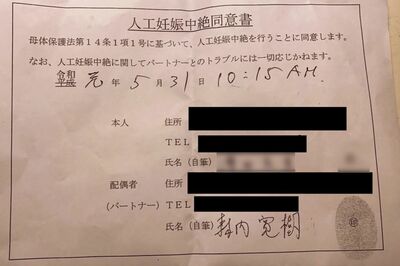 人工妊娠中絶同意書
母体保護法第14条1項1号に基づいて、人工妊娠中絶を行うことに同意します。
なお、人工妊娠中絶に関してパートナーとのトラブルには一切応じかねます。
令和
平成 元 年 5 月 31 日 10:15 AM.
本人 住所
TEL
氏名(自筆)
配偶者 住所
(パートナー) TEL
氏名(自筆) 内 寛樹 ㊞